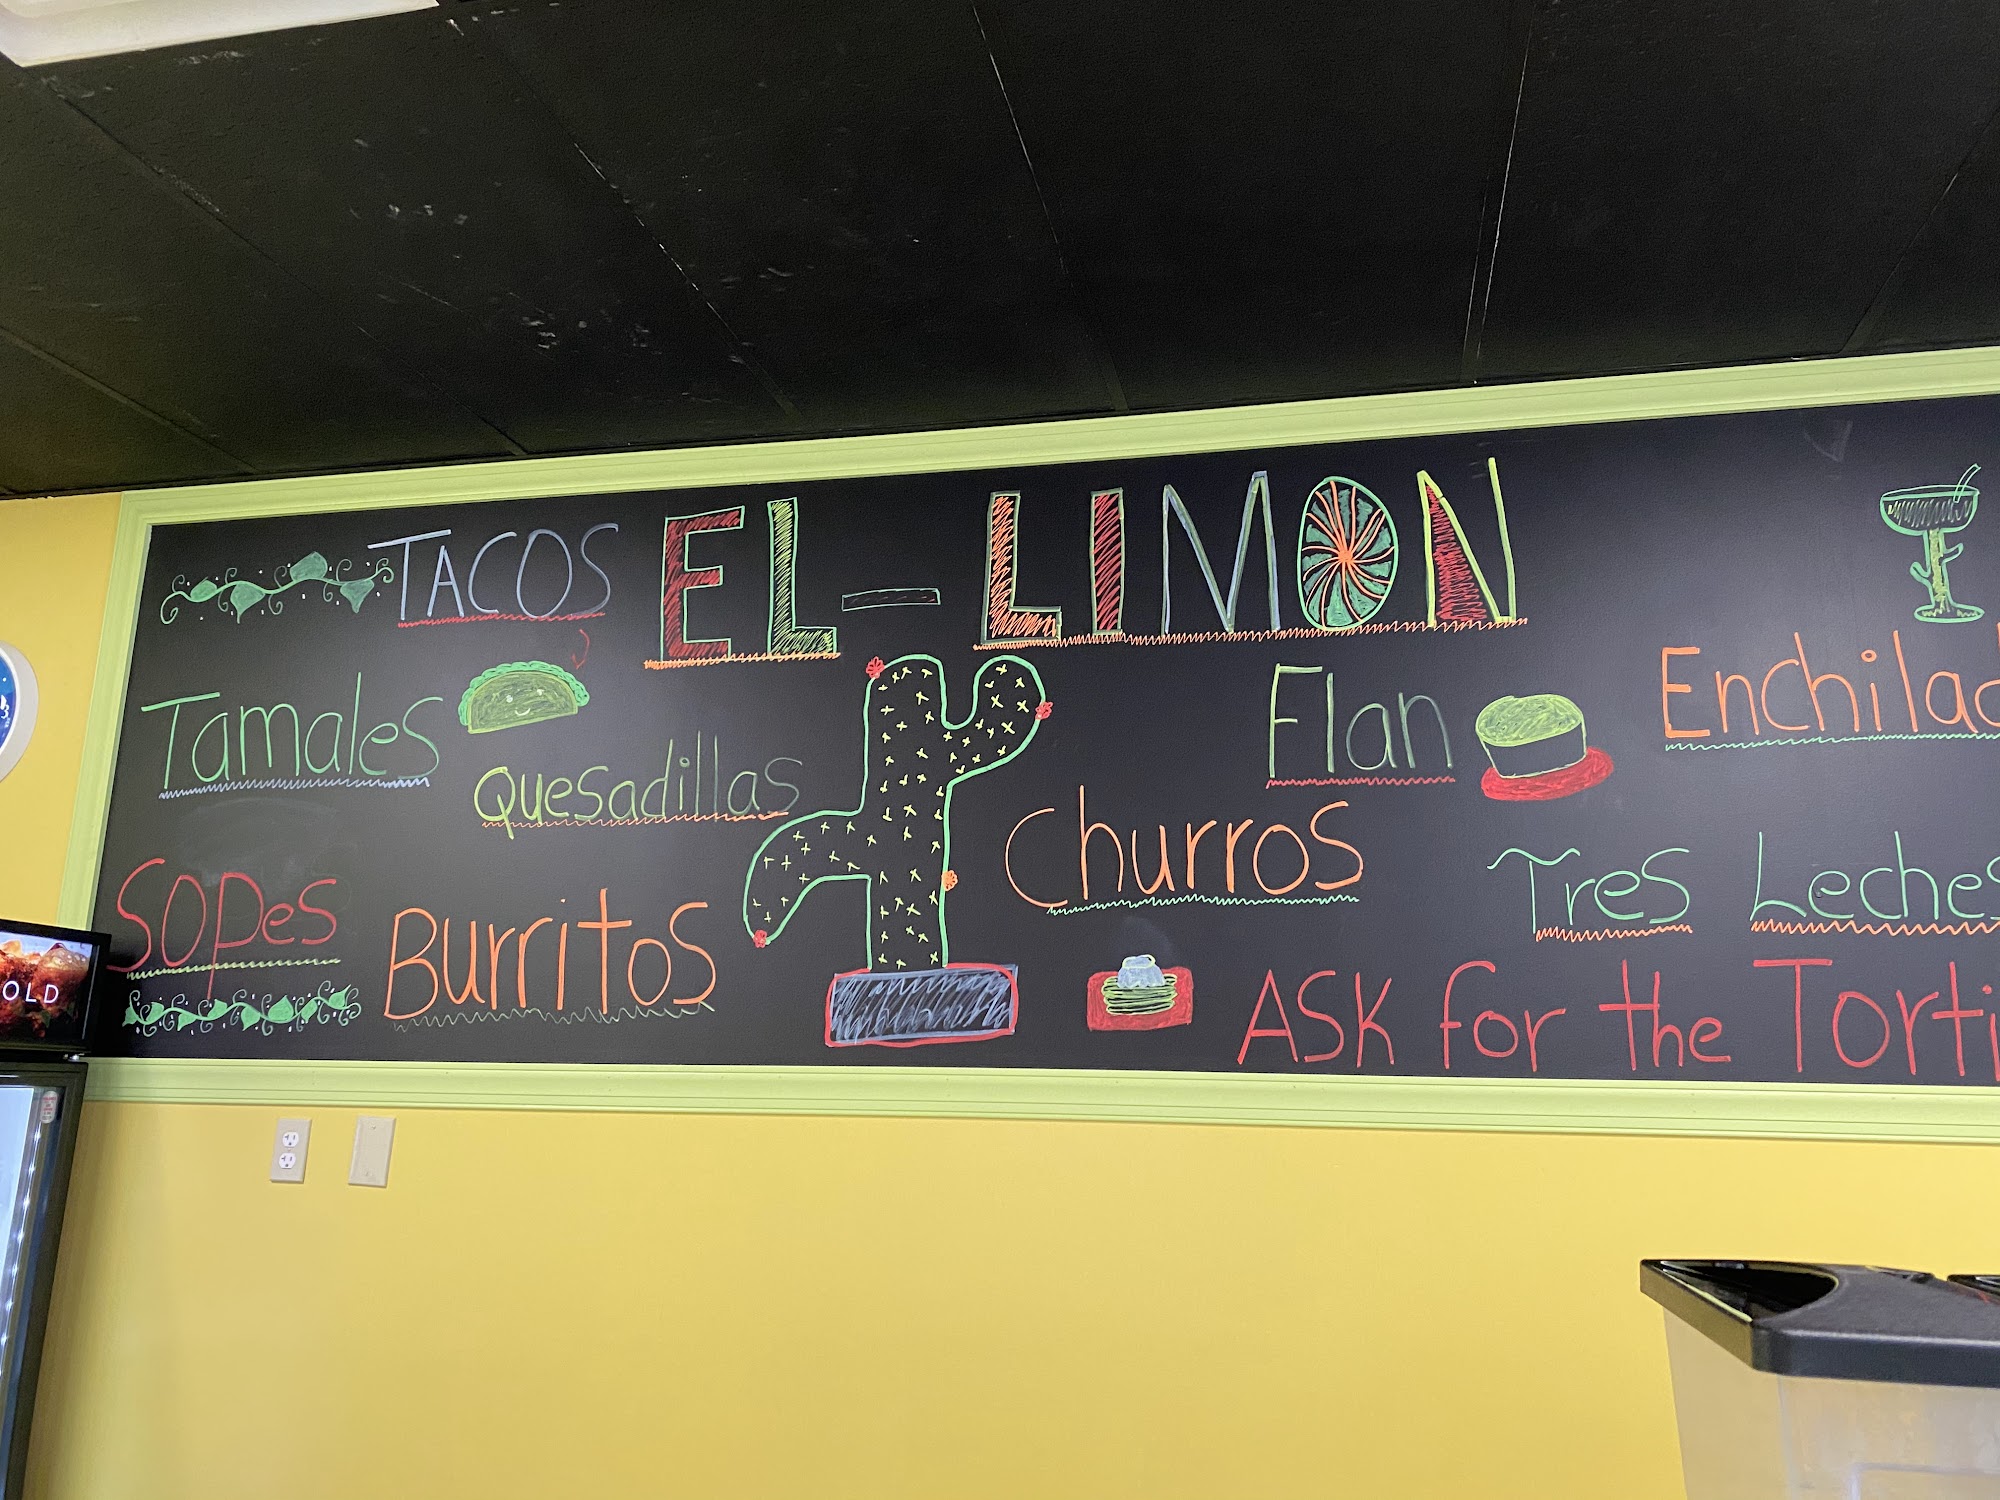 TACOS
EL-LIMON
Tamales
Quesadillas
Flan
Enchilad
Sopes
Burritos
Churros
Tres Leches
ASK for the Torti
OLD